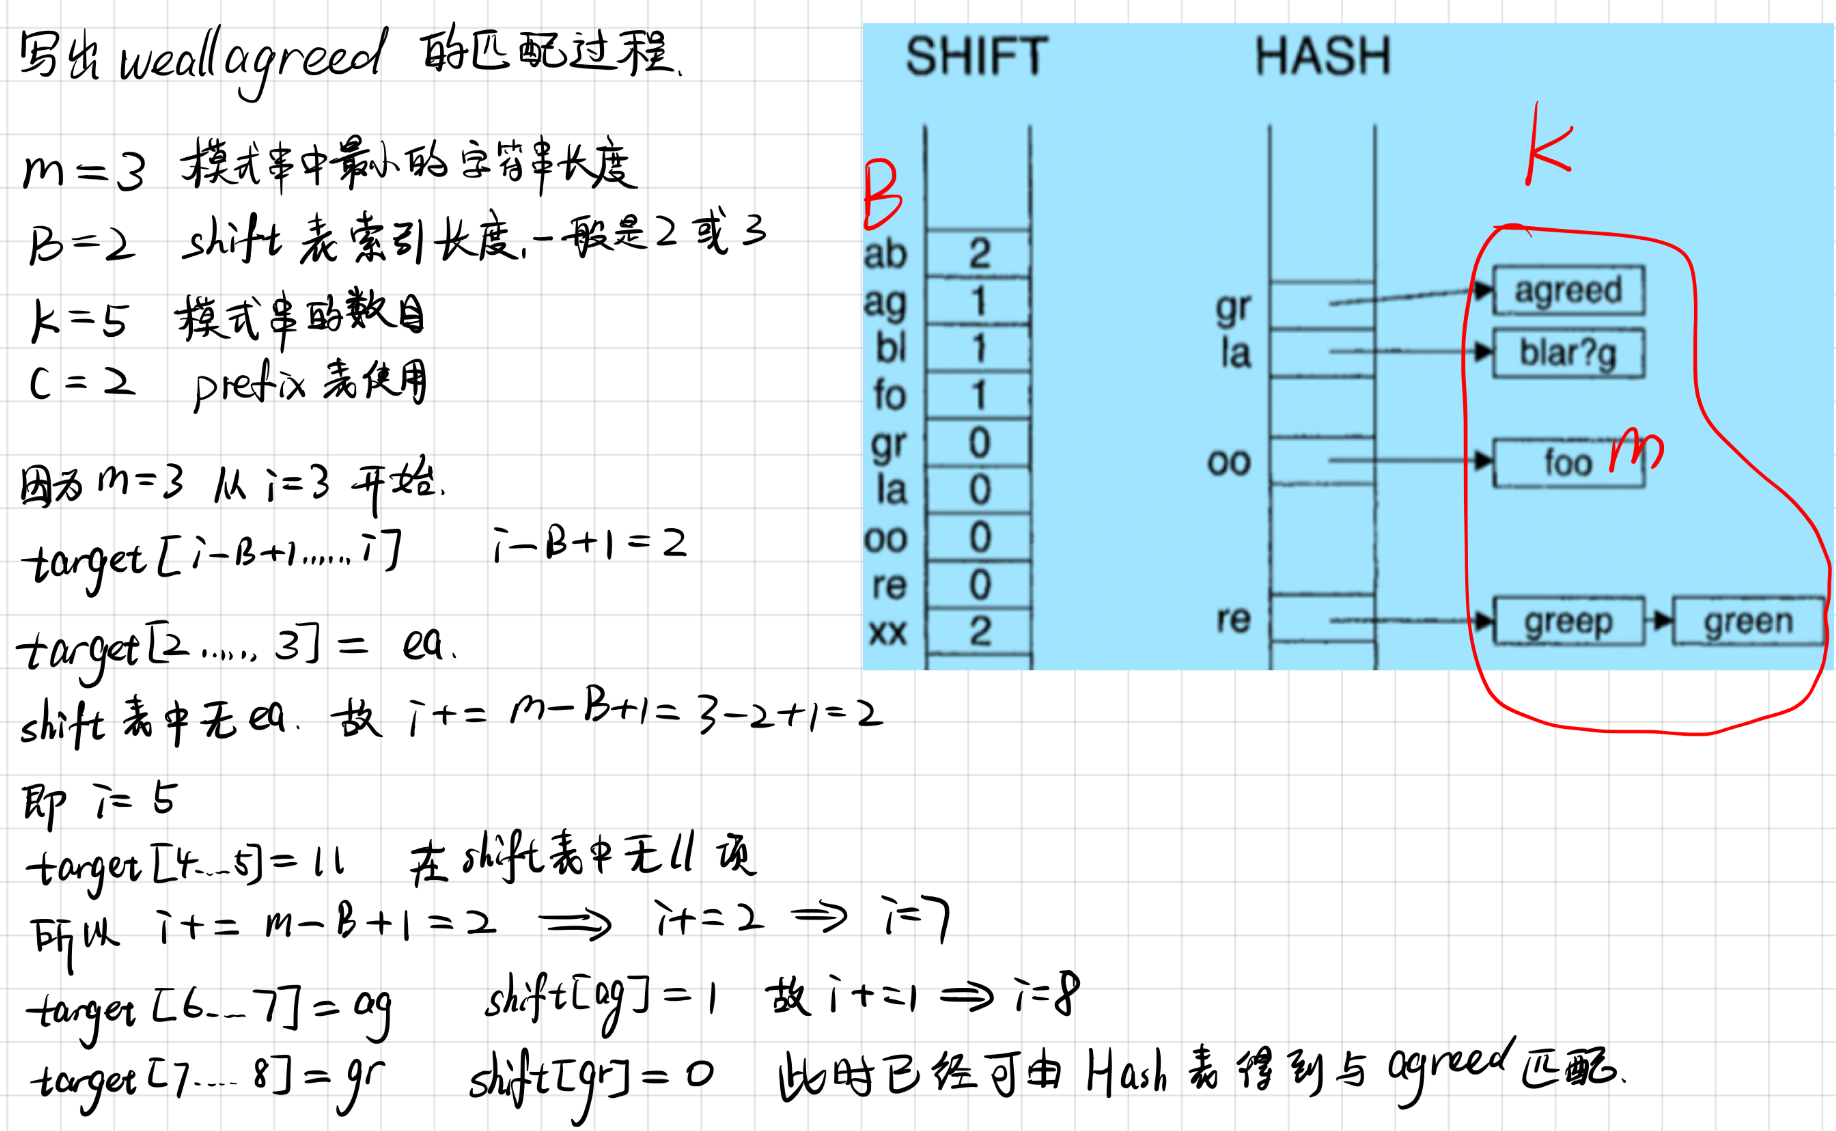 写出 weallagreed 的匹配过程.
m=3 模式串中最小的字符串长度
B=2 shift 表索引长度,一般是2或3
k=5 模式串的数目
C=2 prefix 表使用
因为 m=3 从 i=3 开始.
target[i-B+1......i] i-B+1=2
target[2....., 3] = ea.
shift 表中无 ea. 故 i+= m-B+1=3-2+1=2
即 i=5
target[4...5]=ll 在 shift 表中无 ll 项
所以 i+= m-B+1=2 ⟹ i+=2 ⟹ i=7
target[6...7]=ag shift[ag]=1 故 i+=1 ⟹ i=8
target[7....8]=gr shift[gr]=0 此时已经可由 Hash 表得到与 agreed 匹配.
SHIFT HASH
B
k
ab 2
ag 1
bl 1
fo 1
gr 0
la 0
oo 0
re 0
xx 2
gr agreed
la blar?g
oo foo m
re greep green